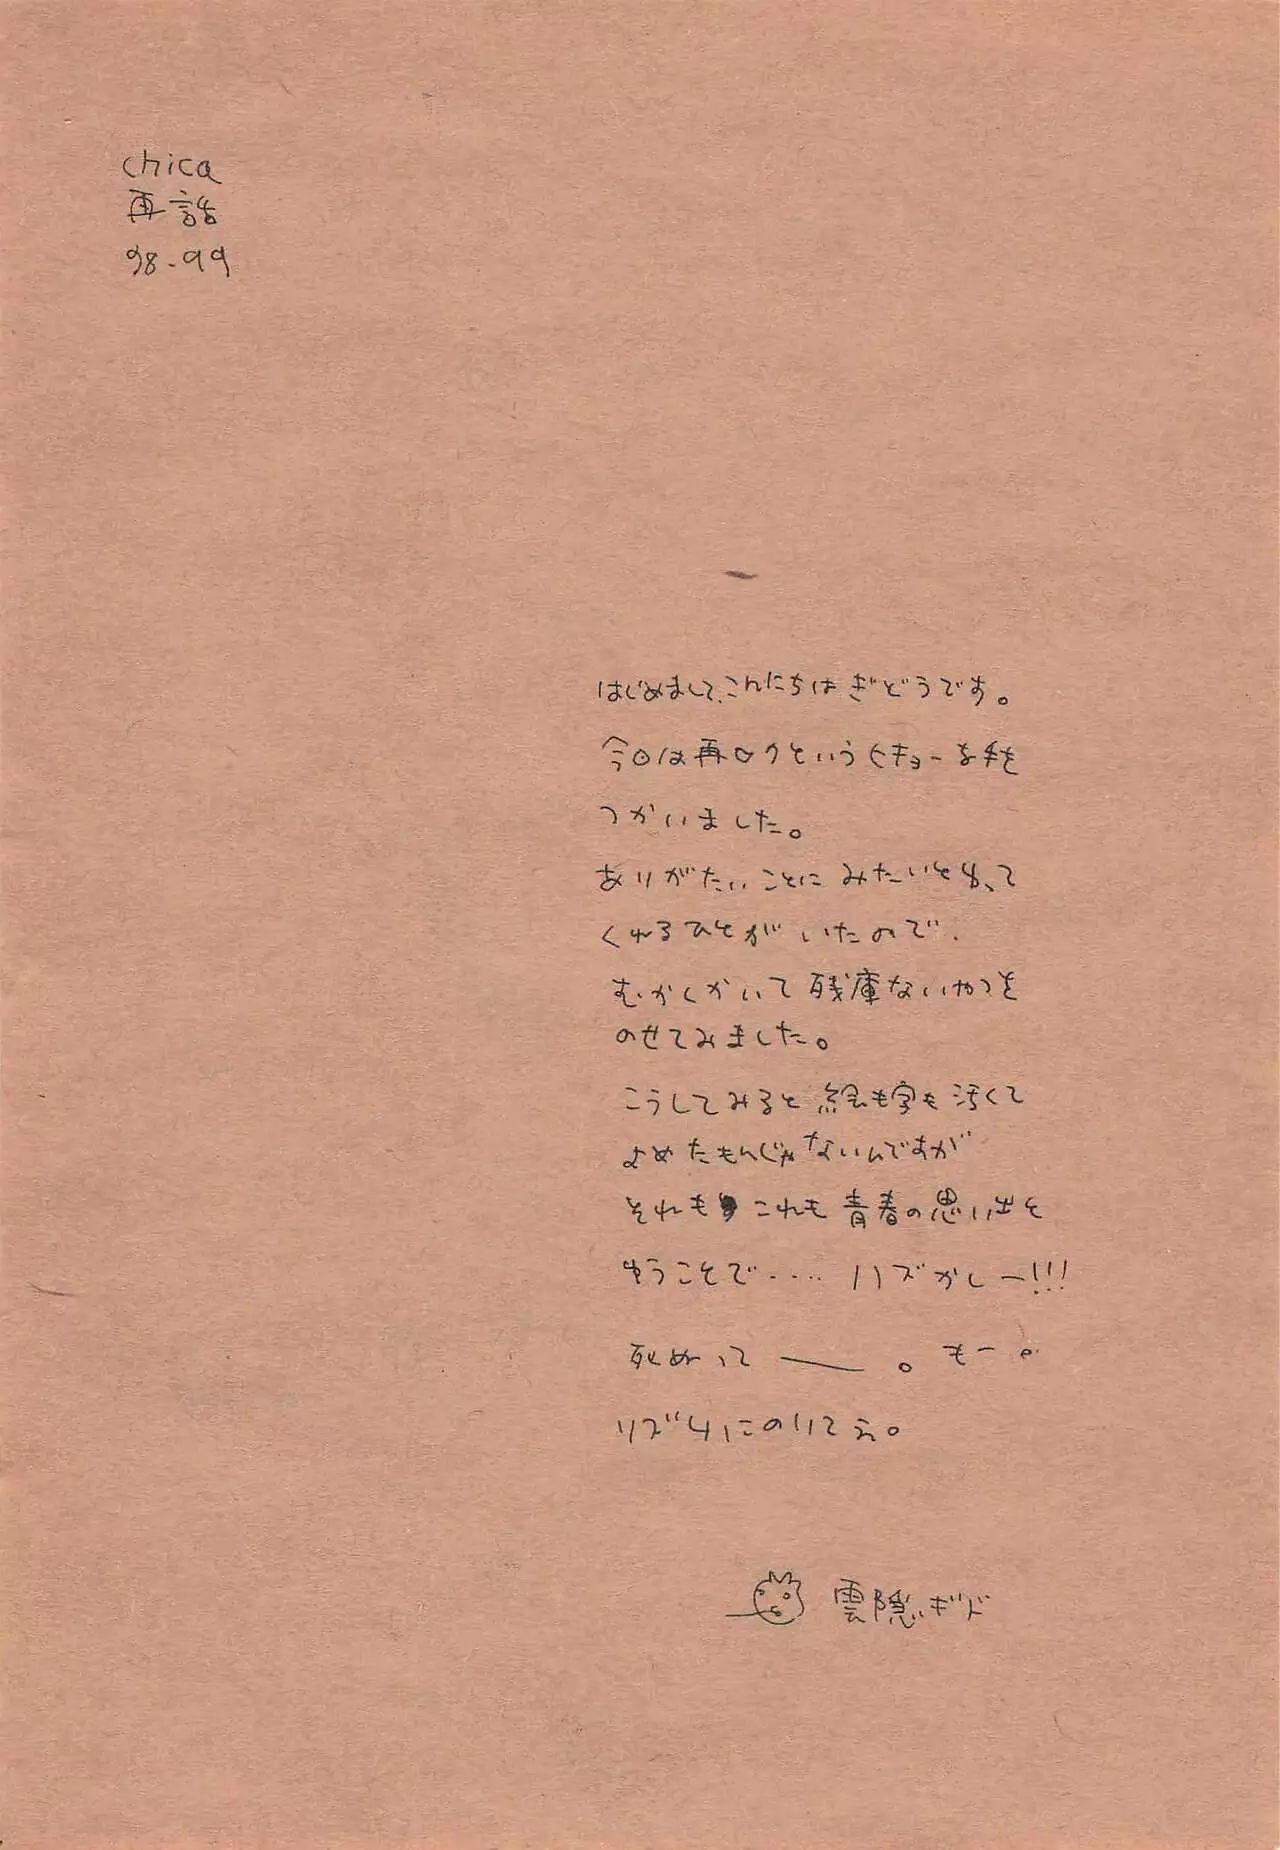 chica
再話
98-99
はじめまして、こんにちはぎどうです。
今回は再ロクというヒキョーな手を
つかいました。
ありがたいことにみたいと
くれるひとがいたので、
むかしかいて残庫ないやつを
のせてみました。
こうしてみると絵も字も汚くて
よめたもんじゃないんですが
それもこれも青春の思い出と
ゆうことで・・・・ハズかしー!!!
死ぬって――。もー。
リズムにのりてえ。
雲隠ギド